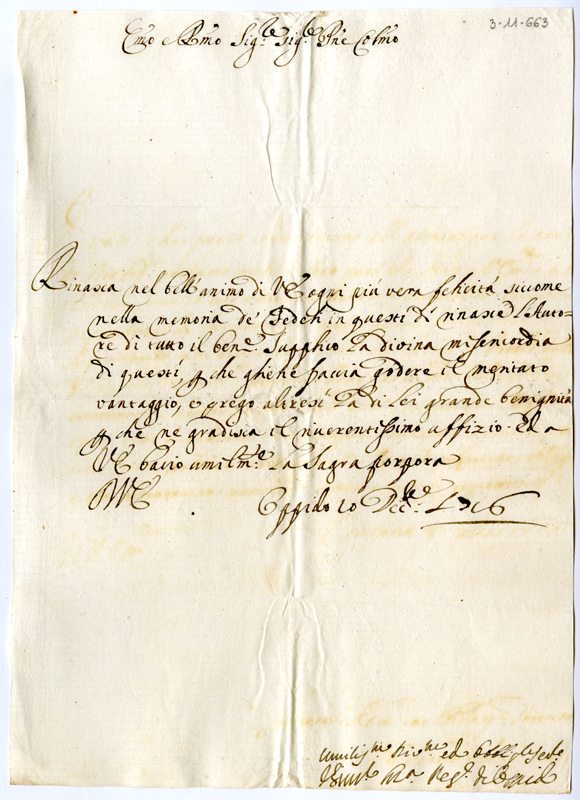 3-11-663
Emo e Rmo Sig.re Sig.re Pne Colmo
Rinasca nel bell'animo di VE ogni più vera felicità siccome
nella memoria de' Fedeli in questi dì rinasce l'Auto=
re di tutto il bene. Supplico la divina misericordia
di questi, che gliene faccia godere il meritato
vantaggio, e prego altresì la di Lei grande benignità
che ne gradisca il riverentissimo uffizio. Ed a
VE bacio umilm.e la Sagra porpora
VE
Oppido 10 Dec.bre 1716
Umiliss.mo ed Obbl